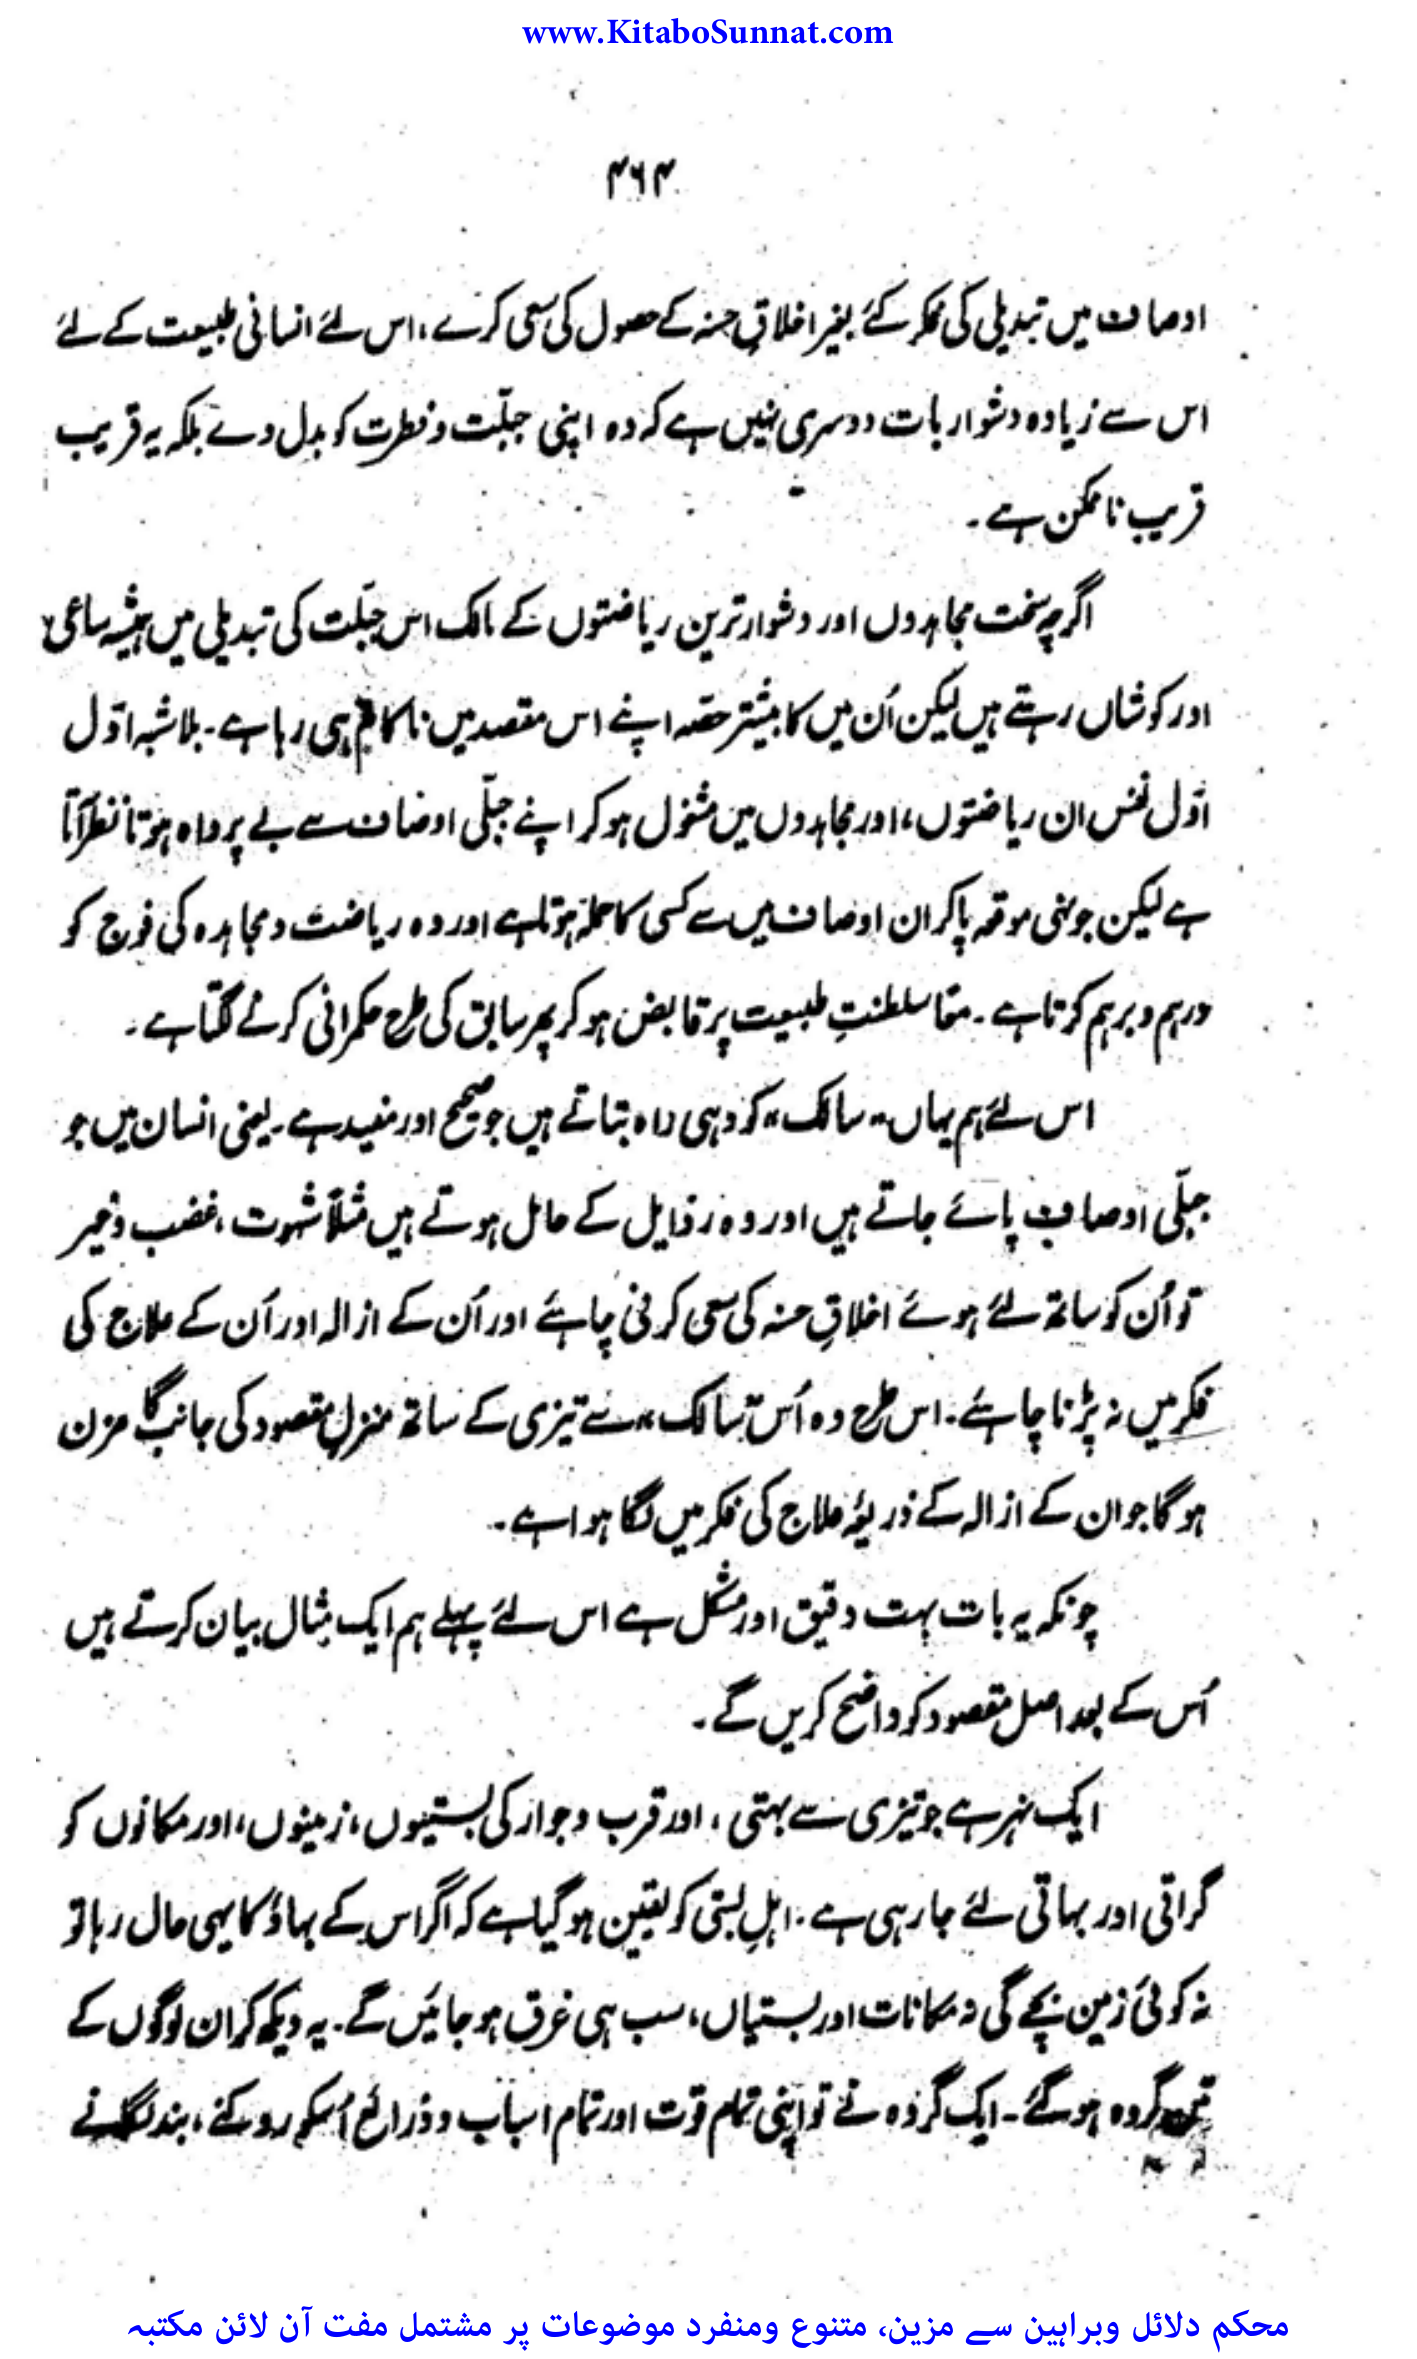 www.KitaboSunnat.com
۴۶۴
اوصاف میں تبدیلی کی فکر کئے بغیر اخلاقِ حسنہ کے حصول کی سعی کرے، اس لئے انسانی طبیعت کے لئے
اس سے زیادہ دشوار بات دوسری نہیں ہے کہ وہ اپنی جبلّت و فطرت کو بدل دے بلکہ یہ قریب
قریب ناممکن ہے۔
اگرچہ سخت مجاہدوں اور دشوار ترین ریاضتوں کے مالک اس جبلّت کی تبدیلی میں ہمیشہ ساعی
اور کوشاں رہتے ہیں لیکن اُن میں کا بیشتر حصّہ اپنے اس مقصد میں ناکام ہی رہا ہے۔ بلاشبہ اوّل
اوّل نفس ان ریاضتوں، اور مجاہدوں میں مشغول ہو کر اپنے جبلّی اوصاف سے بے پرواہ ہوتا نظر آتا
ہے لیکن جونہی موقعہ پاکر ان اوصاف میں سے کسی کا حملہ ہوتا ہے اور وہ ریاضت و مجاہدہ کی فوج کو
درہم و برہم کرتا ہے۔ معًا سلطنتِ طبیعت پر قابض ہو کر پھر سابق کی طرح حکمرانی کرنے لگتا ہے۔
اس لئے ہم یہاں "سالک" کو وہی راہ بتاتے ہیں جو صحیح اور مفید ہے۔ یعنی انسان میں جو
جبلّی اوصاف پائے جاتے ہیں اور وہ رذایل کے حامل ہوتے ہیں مثلاً شہوت، غضب وغیر
تو اُن کو ساتھ لئے ہوئے اخلاقِ حسنہ کی سعی کرنی چاہئے اور اُن کے ازالہ اور اُن کے علاج کی
فکر میں نہ پڑنا چاہئے۔ اس طرح وہ اُس "سالک" سے تیزی کے ساتھ منزلِ مقصود کی جانب گامزن
ہوگا جو ان کے ازالہ کے ذریعۂ علاج کی فکر میں لگا ہوا ہے۔
چونکہ یہ بات بہت دقیق اور مشکل ہے اس لئے پہلے ہم ایک مثال بیان کرتے ہیں
اُس کے بعد اصل مقصود کو واضح کریں گے۔
ایک نہر ہے جو تیزی سے بہتی، اور قرب و جوار کی بستیوں، زمینوں، اور مکانوں کو
گراتی اور بہاتی لئے جا رہی ہے۔ اہلِ بستی کو یقین ہو گیا ہے کہ اگر اس کے بہاؤ کا یہی حال رہا تو
نہ کوئی زمین بچے گی نہ مکانات اور بستیاں، سب ہی غرق ہو جائیں گے۔ یہ دیکھ کر ان لوگوں کے
تین گروہ ہو گئے۔ ایک گروہ نے تو اپنی تمام قوّت اور تمام اسباب و ذرائع اُسکو روکنے، بند لگانے
محکم دلائل وبراہین سے مزین، متنوع ومنفرد موضوعات پر مشتمل مفت آن لائن مکتبہ